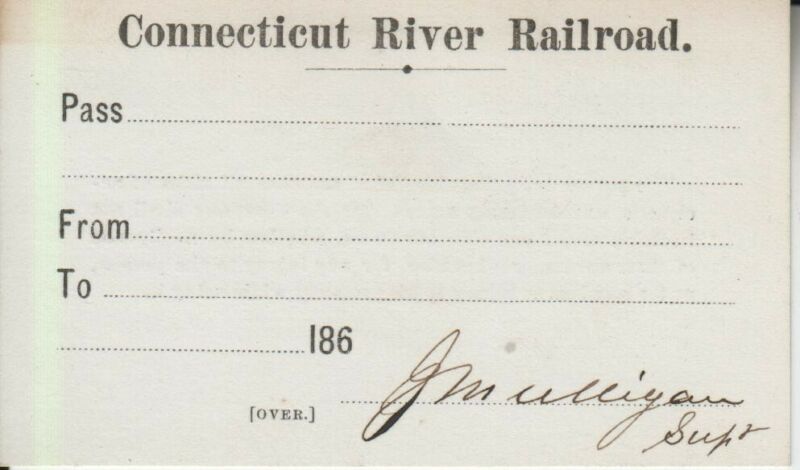 Connecticut River Railroad.
Pass
From
To
186
J Mulligan
[OVER.]
Supt